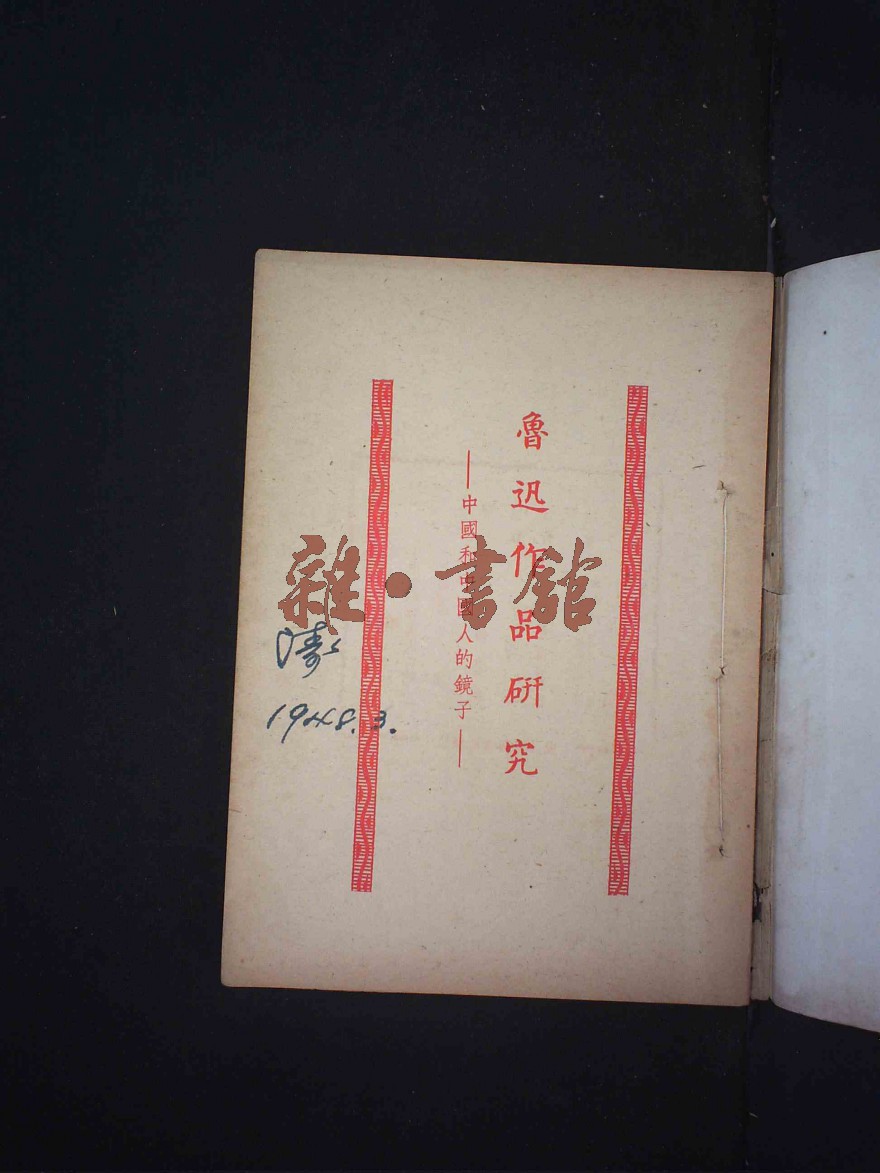 魯迅作品研究
——中國和中國人的鏡子——
雜·書館
濤
1948.3.